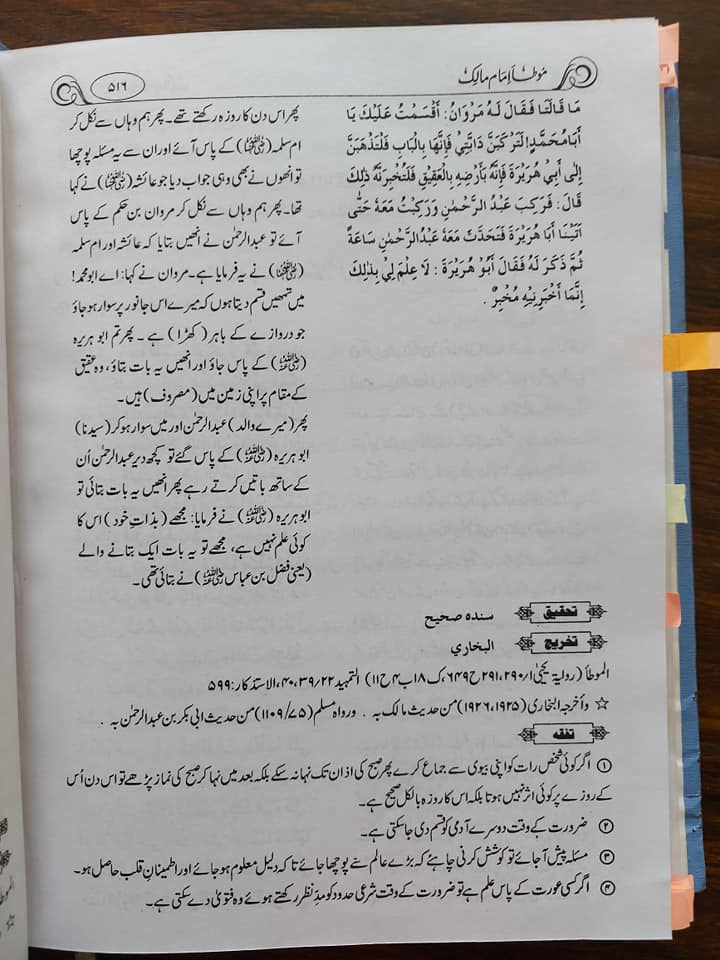 موطأ إمام مالك
۵۱۶
مَا قَالَتَا فَقَالَ لَهُ مَرْوَانُ: أَقْسَمْتُ عَلَيْكَ يَا
أَبَا مُحَمَّدٍ! لَتَرْكَبَنَّ دَابَّتِي فَإِنَّهَا بِالْبَابِ فَلْتَذْهَبَنَّ
إِلَى أَبِي هُرَيْرَةَ فَإِنَّهُ بِأَرْضِهِ بِالْعَقِيقِ فَلَتُخْبِرَنَّهُ ذٰلِكَ
قَالَ: فَرَكِبَ عَبْدُ الرَّحْمٰنِ وَرَكِبْتُ مَعَهُ حَتَّى
أَتَيْنَا أَبَا هُرَيْرَةَ فَتَحَدَّثَ مَعَهُ عَبْدُ الرَّحْمٰنِ سَاعَةً
ثُمَّ ذَكَرَ لَهُ فَقَالَ أَبُو هُرَيْرَةَ : لَا عِلْمَ لِي بِذٰلِكَ
إِنَّمَا أَخْبَرَنِيْهِ مُخْبِرٌ .
پھر اس دن کا روزہ رکھتے تھے۔ پھر ہم وہاں سے نکل کر
ام سلمہ (رضی اللہ عنہا) کے پاس آئے اور ان سے یہ مسئلہ پوچھا
تو انھوں نے بھی وہی جواب دیا جو عائشہ (رضی اللہ عنہا) نے کہا
تھا۔ پھر ہم وہاں سے نکل کر مروان بن حکم کے پاس
آئے تو عبدالرحمٰن نے انھیں بتایا کہ عائشہ اور ام سلمہ
(رضی اللہ عنہا) نے یہ فرمایا ہے۔ مروان نے کہا: اے ابو محمد!
میں تمھیں قسم دیتا ہوں کہ میرے اس جانور پر سوار ہو جاؤ
جو دروازے کے باہر (کھڑا) ہے۔ پھر تم ابو ہریرہ
(رضی اللہ عنہ) کے پاس جاؤ اور انھیں یہ بات بتاؤ، وہ عقیق
کے مقام پر اپنی زمین میں (مصروف) ہیں۔
پھر (میرے والد) عبدالرحمٰن اور میں سوار ہو کر (سیدنا)
ابو ہریرہ (رضی اللہ عنہ) کے پاس گئے تو کچھ دیر عبدالرحمٰن اُن
کے ساتھ باتیں کرتے رہے پھر انھیں یہ بات بتائی تو
ابو ہریرہ (رضی اللہ عنہ) نے فرمایا: مجھے (بذاتِ خود) اس کا
کوئی علم نہیں ہے، مجھے تو یہ بات ایک بتانے والے
(یعنی فضل بن عباس رضی اللہ عنہ) نے بتائی تھی۔
تحقیق سندہ صحیح
تخریج البخاري
الموطأ (روایۃ یحییٰ ۱/ ۲۹۰، ۲۹۱ ح ۶۴۹، ک ۱۸ ب ۴ ح ۱۱) التمہید ۲۲/ ۳۹، ۴۰، الاستذکار: ۵۹۹
☆ وأخرجہ البخاری (۱۹۲۵، ۱۹۲۶) من حدیث مالک بہ . ورواہ مسلم (۷۵/ ۱۱۰۹) من حدیث ابی بکر بن عبدالرحمٰن بہ .
تفقہ
① اگر کوئی شخص رات کو اپنی بیوی سے جماع کرے پھر صبح کی اذان تک نہا نہ سکے بلکہ بعد میں نہا کر صبح کی نماز پڑھے تو اس دن اُس
کے روزے پر کوئی اثر نہیں ہوتا بلکہ اس کا روزہ بالکل صحیح ہے۔
② ضرورت کے وقت دوسرے آدمی کو قسم دی جا سکتی ہے۔
③ مسئلہ پیش آ جائے تو کوشش کرنی چاہئے کہ بڑے عالم سے پوچھا جائے تاکہ دلیل معلوم ہو جائے اور اطمینانِ قلب حاصل ہو۔
④ اگر کسی عورت کے پاس علم ہے تو ضرورت کے وقت شرعی حدود کو مدِ نظر رکھتے ہوئے وہ فتویٰ دے سکتی ہے۔